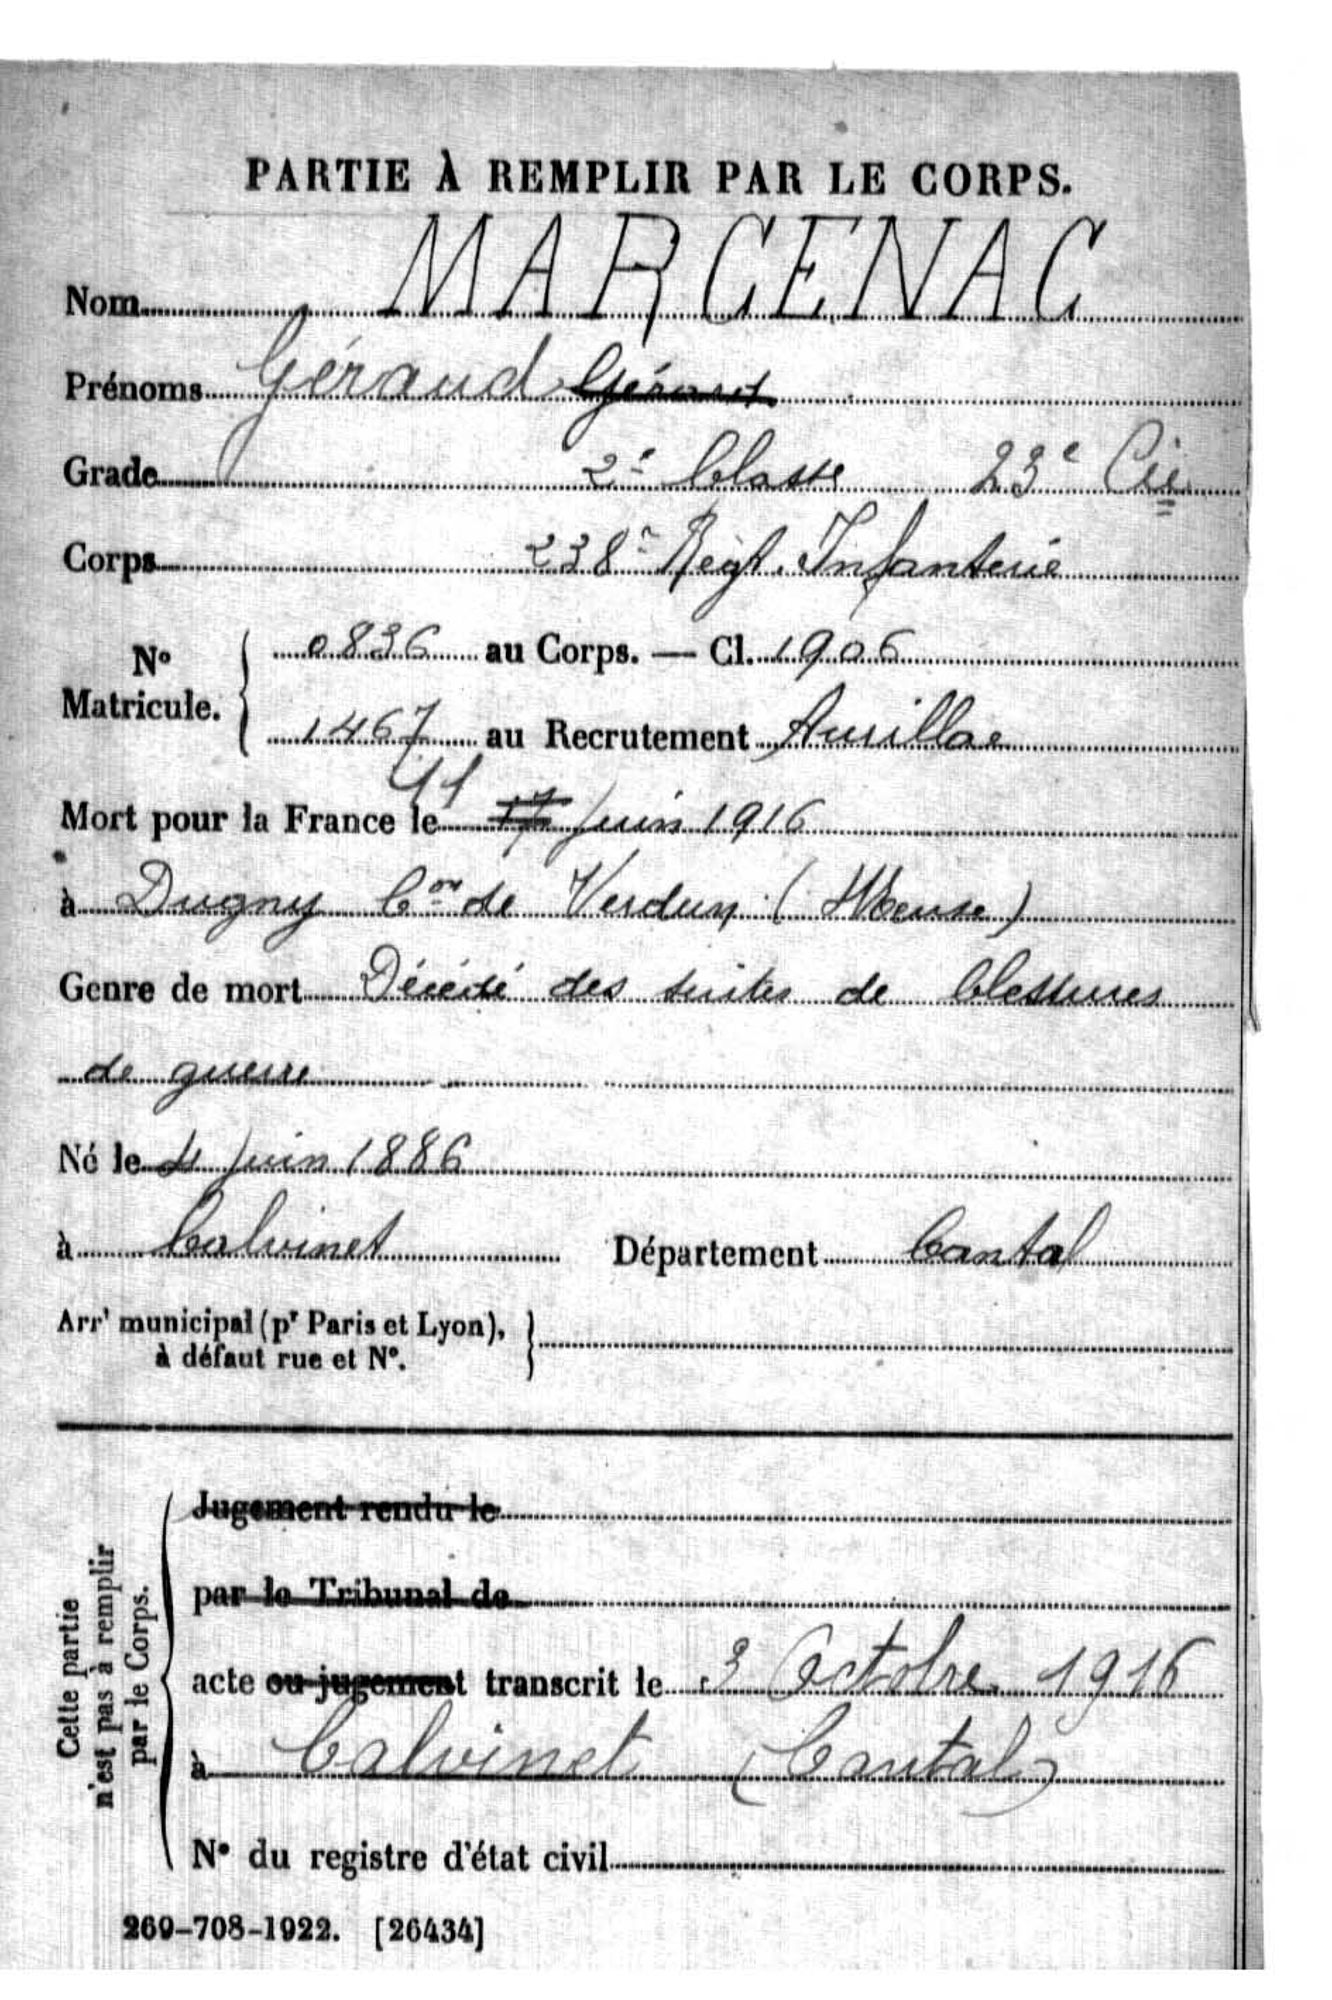 PARTIE À REMPLIR PAR LE CORPS.
Nom MARCENAC
Prénoms Géraud Gérard
Grade 2e Classe 23e Cie
Corps 238e Régt. Infanterie
No Matricule. { 0836 au Corps. — Cl. 1906
1467 au Recrutement Aurillac
Mort pour la France le 11 17 Juin 1916
à Dugny Con de Verdun (Meuse)
Genre de mort Décédé des suites de blessures
de guerre
Né le 4 Juin 1886
à Calvinet Département Cantal
Arrt municipal (pr Paris et Lyon),
à défaut rue et No. }
Cette partie
n'est pas à remplir
par le Corps.
Jugement rendu le
par le Tribunal de
acte ou jugement transcrit le 3 Octobre 1916
à Calvinet (Cantal)
No du registre d'état civil
269-708-1922. [26434]